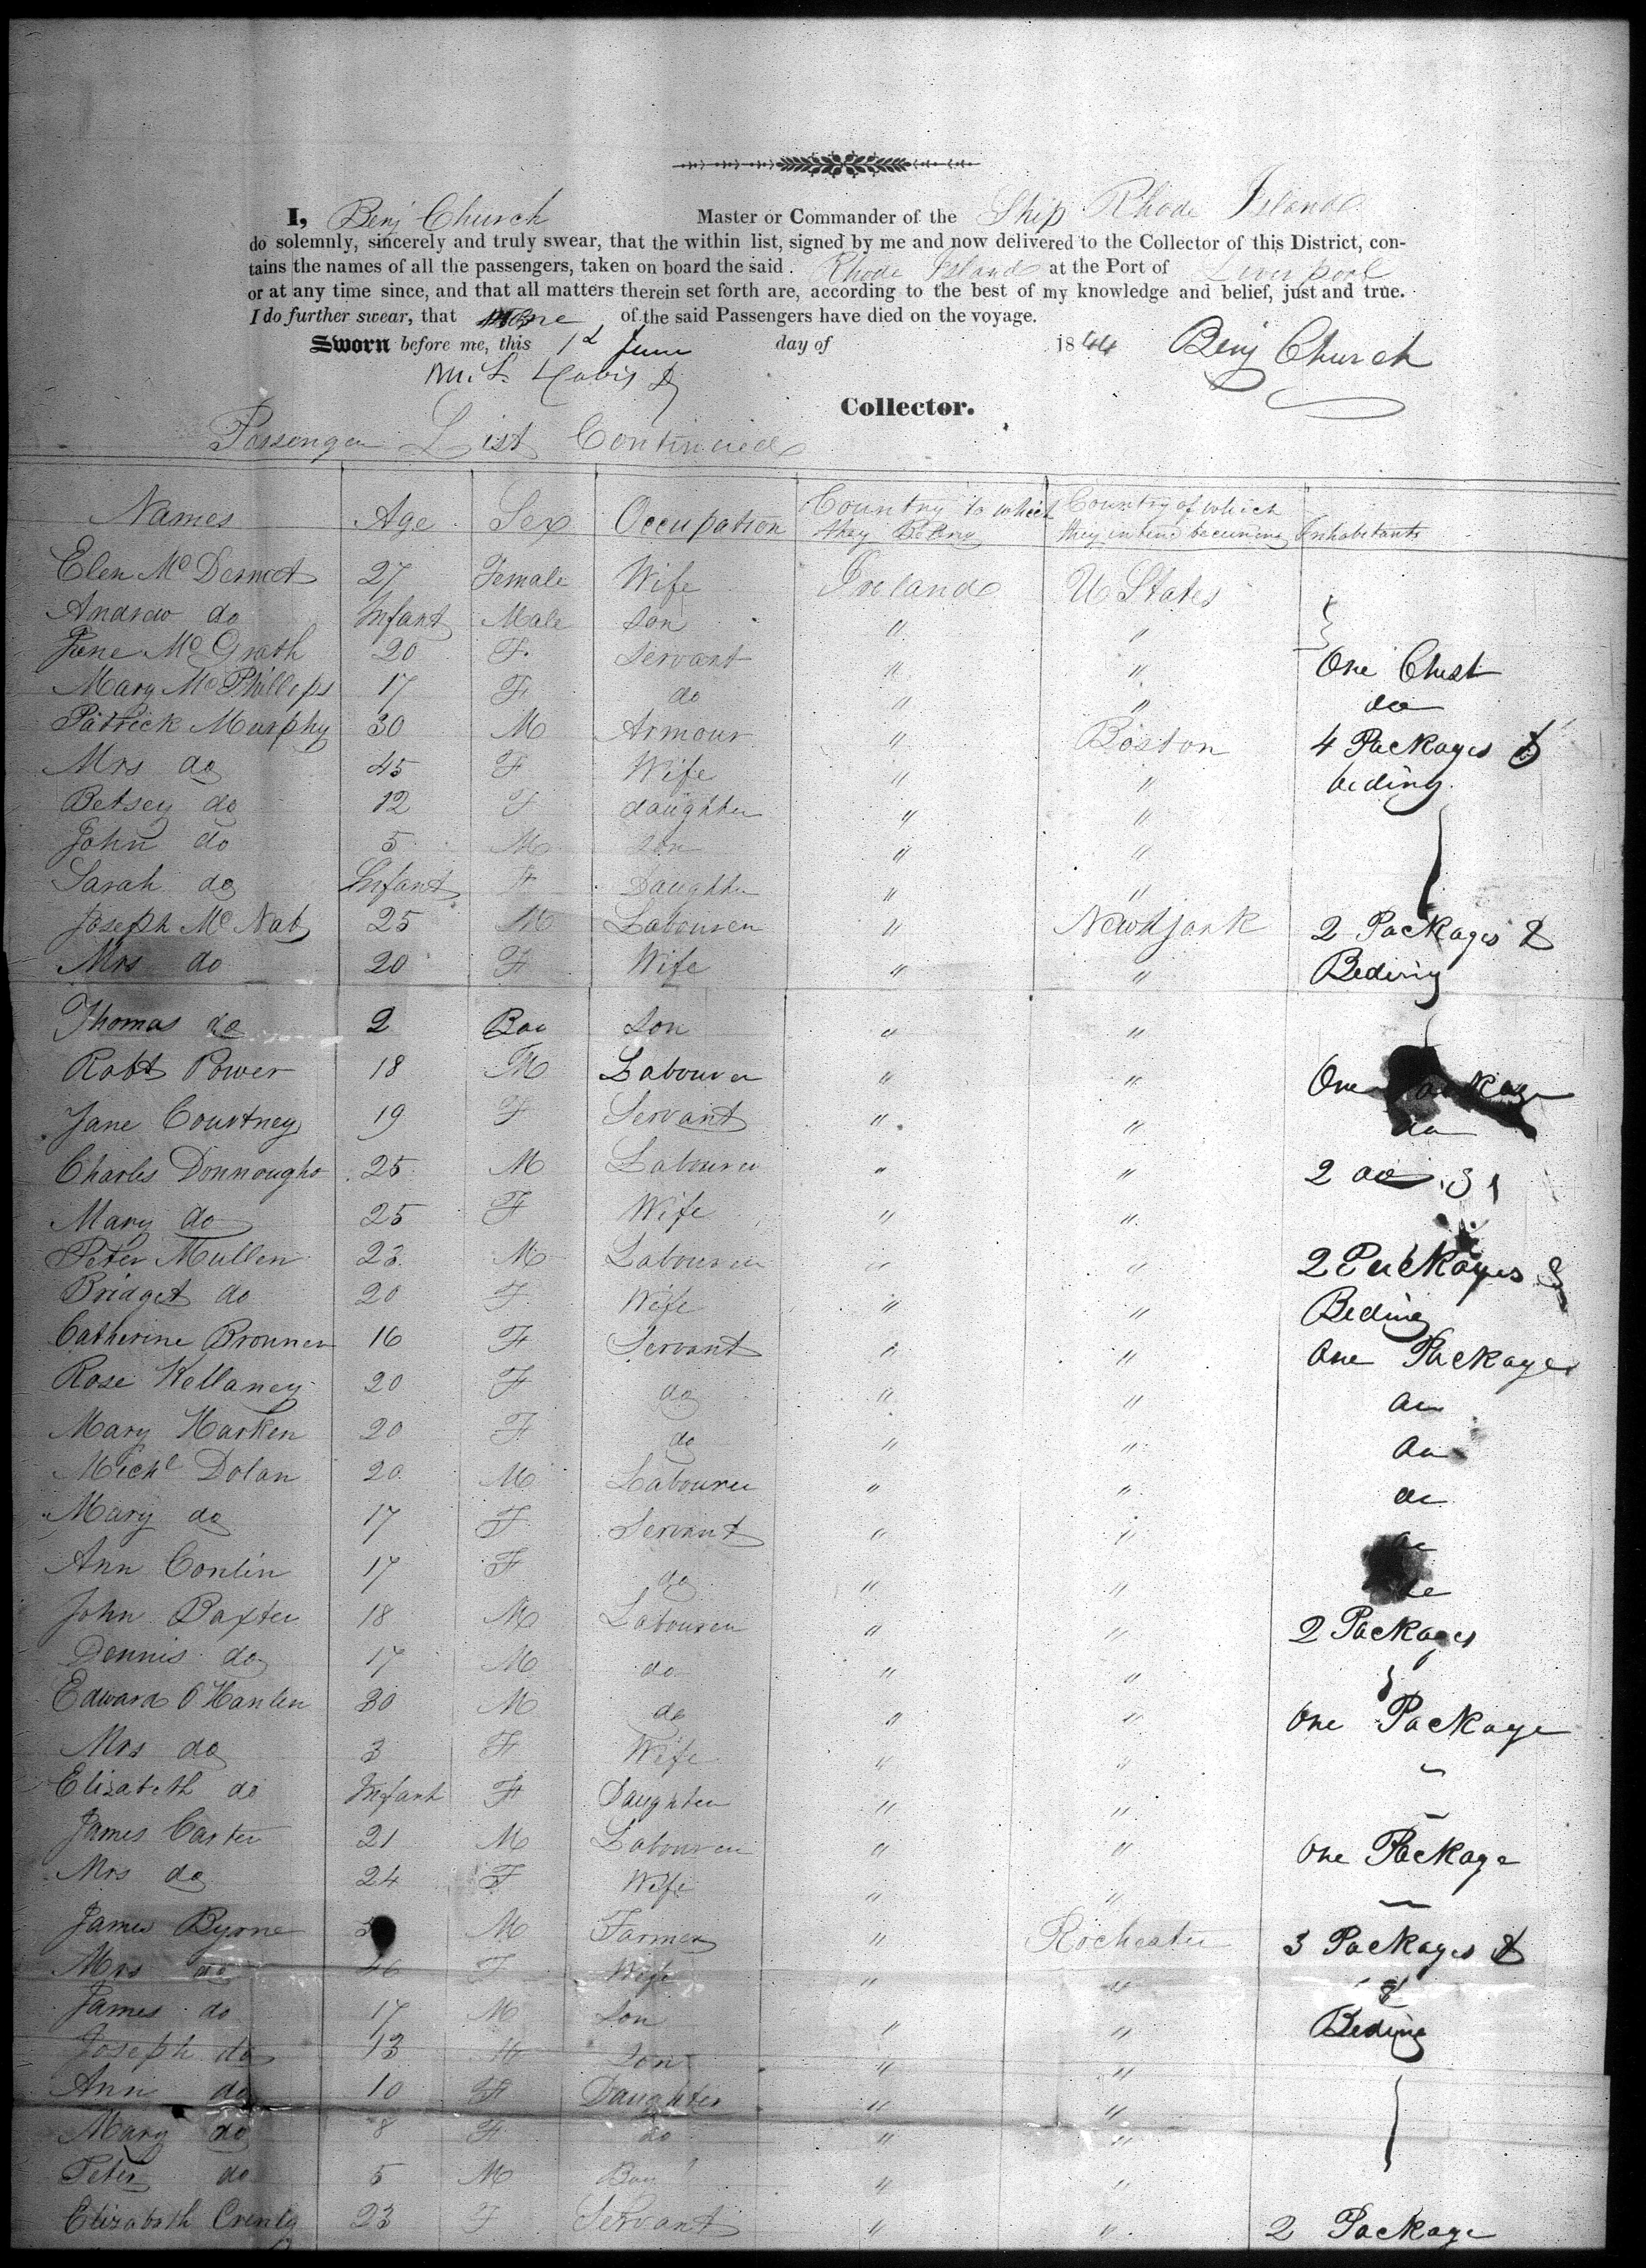 I, Benj Church Master or Commander of the Ship Rhode Island
do solemnly, sincerely and truly swear, that the within list, signed by me and now delivered to the Collector of this District, con-
tains the names of all the passengers, taken on board the said Rhode Island at the Port of Liverpool
or at any time since, and that all matters therein set forth are, according to the best of my knowledge and belief, just and true.
I do further swear, that None of the said Passengers have died on the voyage.
Sworn before me, this 1st June day of 1844 Benj Church
Collector.
Passenger List Continued
Names Age Sex Occupation Country to which they Belong Country of which they intend becoming Inhabitants
Elen McDermot 27 Female Wife Ireland U States
Andrew do Infant Male Son " "
Jane McGrath 20 F. Servant " " One Chest
Mary McPhillips 17 F do " " do
Patrick Murphy 30 M Armour " Boston 4 Packages &
Mrs do 45 F Wife " " beding
Betsey do 12 F daughter " "
John do 5 M Son " "
Sarah do Infant F Daughter " "
Joseph McNab 25 M Labourer " New York 2 Packages &
Mrs do 20 F Wife " " Beding
Thomas do 2 Boy Son " "
Robt Power 18 M Labourer " " One Package
Jane Courtney 19 F Servant " " do
Charles Donnougho 25 M Labourer " " 2 do
Mary do 25 F Wife " "
Peter Mullen 23 M Labourer " " 2 Packages &
Bridget do 20 F Wife " " Beding
Catherine Bronnen 16 F Servant " " One Package
Rose Kellaney 20 F do " " do
Mary Harken 20 F do " " do
Michl Dolan 20 M Labourer " " do
Mary do 17 F Servant " " do
Ann Conlin 17 F do " " do
John Baxter 18 M Labourer " " 2 Packages
Dennis do 17 M do " "
Edward O'Hanlen 30 M do " " One Package
Mrs do 3 F Wife " "
Elizabeth do Infant F Daughter " "
James Carter 21 M Labourer " " One Package
Mrs do 24 F Wife " "
James Byrne M Farmer " Rochester 3 Packages &
Mrs do 46 F Wife " " &
James do 17 M Son " " Beding
Joseph do 13 M Son " "
Ann do 10 F Daughter " "
Mary do 8 F do " "
Peter do 5 M Boy " "
Elizabeth 23 F Servant " " 2 Package